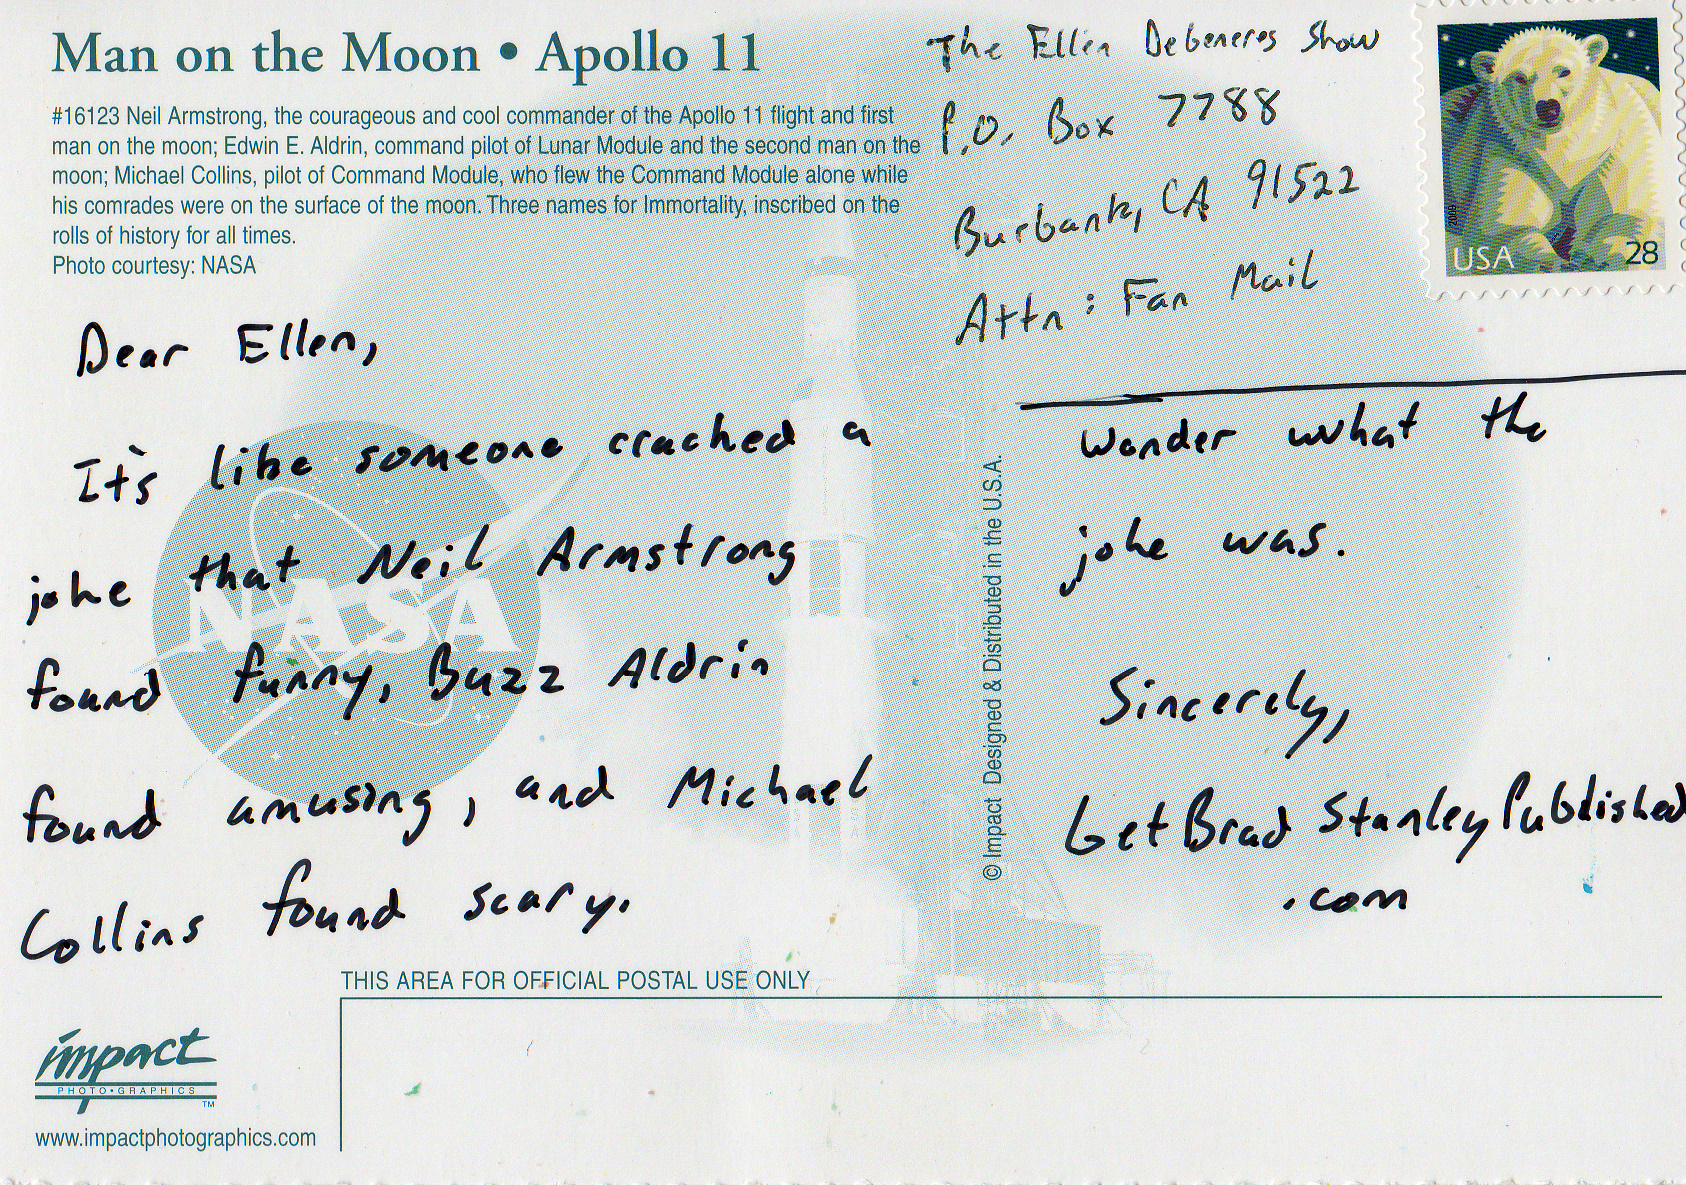 Man on the Moon • Apollo 11
#16123 Neil Armstrong, the courageous and cool commander of the Apollo 11 flight and first
man on the moon; Edwin E. Aldrin, command pilot of Lunar Module and the second man on the
moon; Michael Collins, pilot of Command Module, who flew the Command Module alone while
his comrades were on the surface of the moon. Three names for Immortality, inscribed on the
rolls of history for all times.
Photo courtesy: NASA
The Ellen Degeneres Show
P.O. Box 7788
Burbank, CA 91522
Attn: Fan Mail
USA 28
2009
Dear Ellen,
It's like someone cracked a
joke that Neil Armstrong
found funny, Buzz Aldrin
found amusing, and Michael
Collins found scary.
NASA
Wonder what the
joke was.
Sincerely,
GetBradStanleyPublished
.com
© Impact Designed & Distributed in the U.S.A.
THIS AREA FOR OFFICIAL POSTAL USE ONLY
impact
PHOTO•GRAPHICS
TM
www.impactphotographics.com